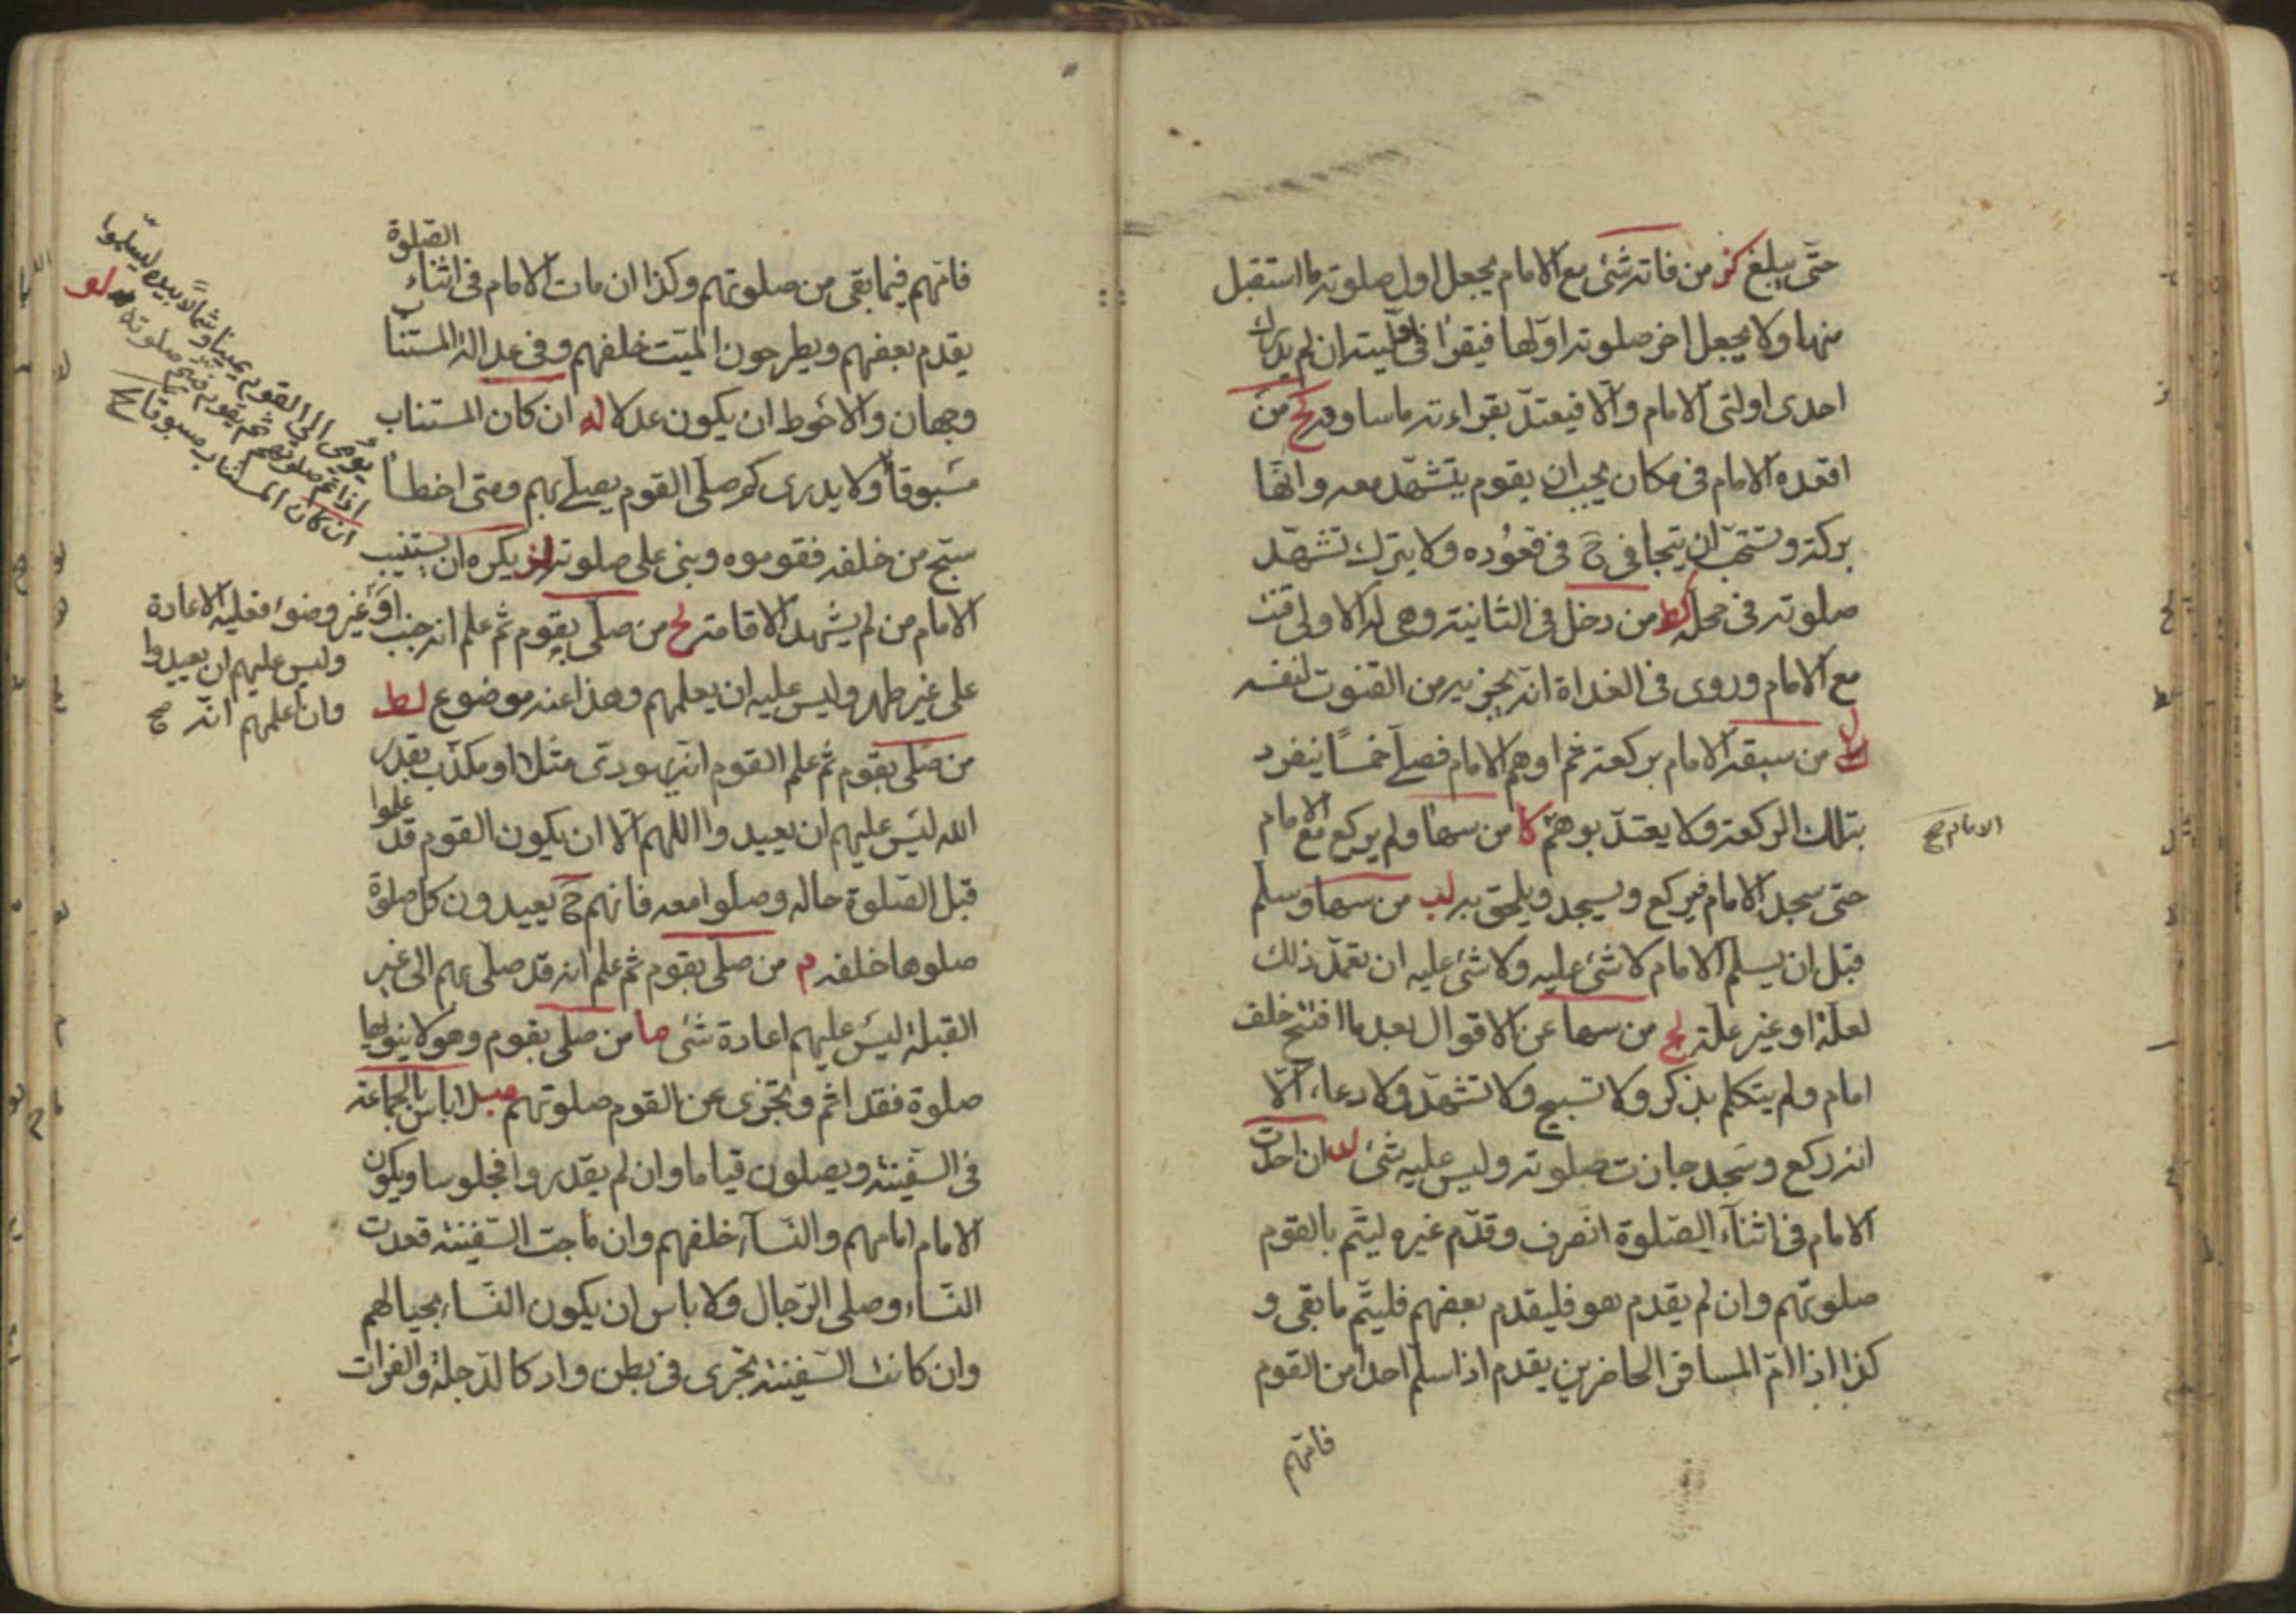 حتّى يبلغ كز من فاته شئ مع الامام يجعل اول صلوته ما استقبل
منها ولا يجعل اخر صلوته اوّلها فيقرأ في اوليته ان لم يدرك
احدى اولتى الامام والّا فيعتدّ بقراءته ما ساوقه كح من
اقعده الامام فى مكان يجب ان يقوم يتشهّد معه وانّها
بركة ويستحبّ ان يتجافى ح فى قعوده ولا يترك تشهّد
صلوته فى محلّه كط من دخل فى الثانية وهى له الاولى قنت
مع الامام وروى فى الغداة انّه يجزيه من القنوت لنفسه
ل من سبقه الامام بركعة ثم اوهم الامام فصلّى خمسًا ينفرد
بتلك الركعة ولا يعتدّ بوهم لا من سها ولم يركع مع الامام
الامام صح
حتى سجد الامام فيركع ويسجد ويلحق به لب من سها وسلّم
قبل ان يسلم الامام لا شئ عليه ولا شئ عليه ان تعمّد ذلك
لعلّة او غير علّة لج من سها عن الاقوال بعد ما افتتح خلف
امام ولم يتكلم بذكر ولا تسبيح ولا تشهّد ولا دعاء الّا
انه ركع وسجد جازت صلوته وليس عليه شئ لد ان احدث
الامام فى اثناء الصّلوة انصرف وقدّم غيره ليتّم بالقوم
صلوتهم وان لم يقدم هو فليقدم بعضهم فليتّم ما بقى و
كذا اذا امّ المسافر الحاضرين يقدم اذا سلّم احدا من القوم
فاتهم
الصّلوة
فاتهم فيما بقى من صلوتهم وكذا ان مات الامام فى اثناء
يقدم بعضهم ويطرحون الميّت خلفهم وفى عدالة المستناب
وجهان والاحوط ان يكون عدلا له ان كان المستناب
مسبوقاً ولا يدرى كم صلّى القوم يصلّى بهم ومتى اخطأ
سبّح من خلفه فقوموه وبنى على صلوته لز يكره ان يستنيب
الامام من لم يشهد الاقامة لح من صلّى بقوم ثم علم انه جنب
على غير طهر وليس عليه ان يعلمهم وهذا عنه موضوع لط
من صلّى بقوم ثم علم القوم انّه يهودىّ مثلا او مكذّب بقدر
الله ليس عليهم ان يعيدوا اللهم الّا ان يكون القوم قد علموا
قبل الصّلوة حاله وصلوا معه فانهم ح يعيدون كل صلوة
صلوها خلفه م من صلّى بقوم ثم علم انه قد صلّى بهم الى غير
القبلة ليس عليهم اعادة شئ ما من صلّى بقوم وهو لا ينويها
صلوة فقد اثم وتجزى عن القوم صلوتهم مب لا باس بالجماعة
فى السّفينة ويصلون قياما وان لم يقدروا فجلوسا ويكون
الامام امامهم والنّساء خلفهم وان ماجت السّفينة قعدت
النّساء وصلى الرّجال ولا باس ان يكون النّساء بحيالهم
وان كانت السّفينة تجرى فى بطن واد كالدّجلة والفرات
يؤمى الى القوم يمينا وشمالا بيده ليسلّموا
اذا تمّ صلوتهم ثم يقوم فيتم صلوته لو
ان كان المستناب مسبوقا صح
او غير وضوء فعليه الاعادة
وليس عليهم ان يعيدوا
وان اعلمهم انّه صح